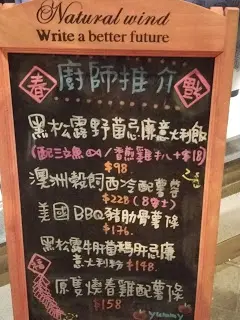 Natural wind
Write a better future
春 廚師推介
黑松露野菌忌廉意大利飯
(配三文魚 / 香煎雞扒 +$18)
$98
澳洲穀飼西冷配薯蓉
$228 (8oz)
美國BBQ豬肋骨薯條
$176
黑松露牛肝菌瑪肝忌廉
意大利粉 $148
原隻燒春雞配薯條
$158
yummy